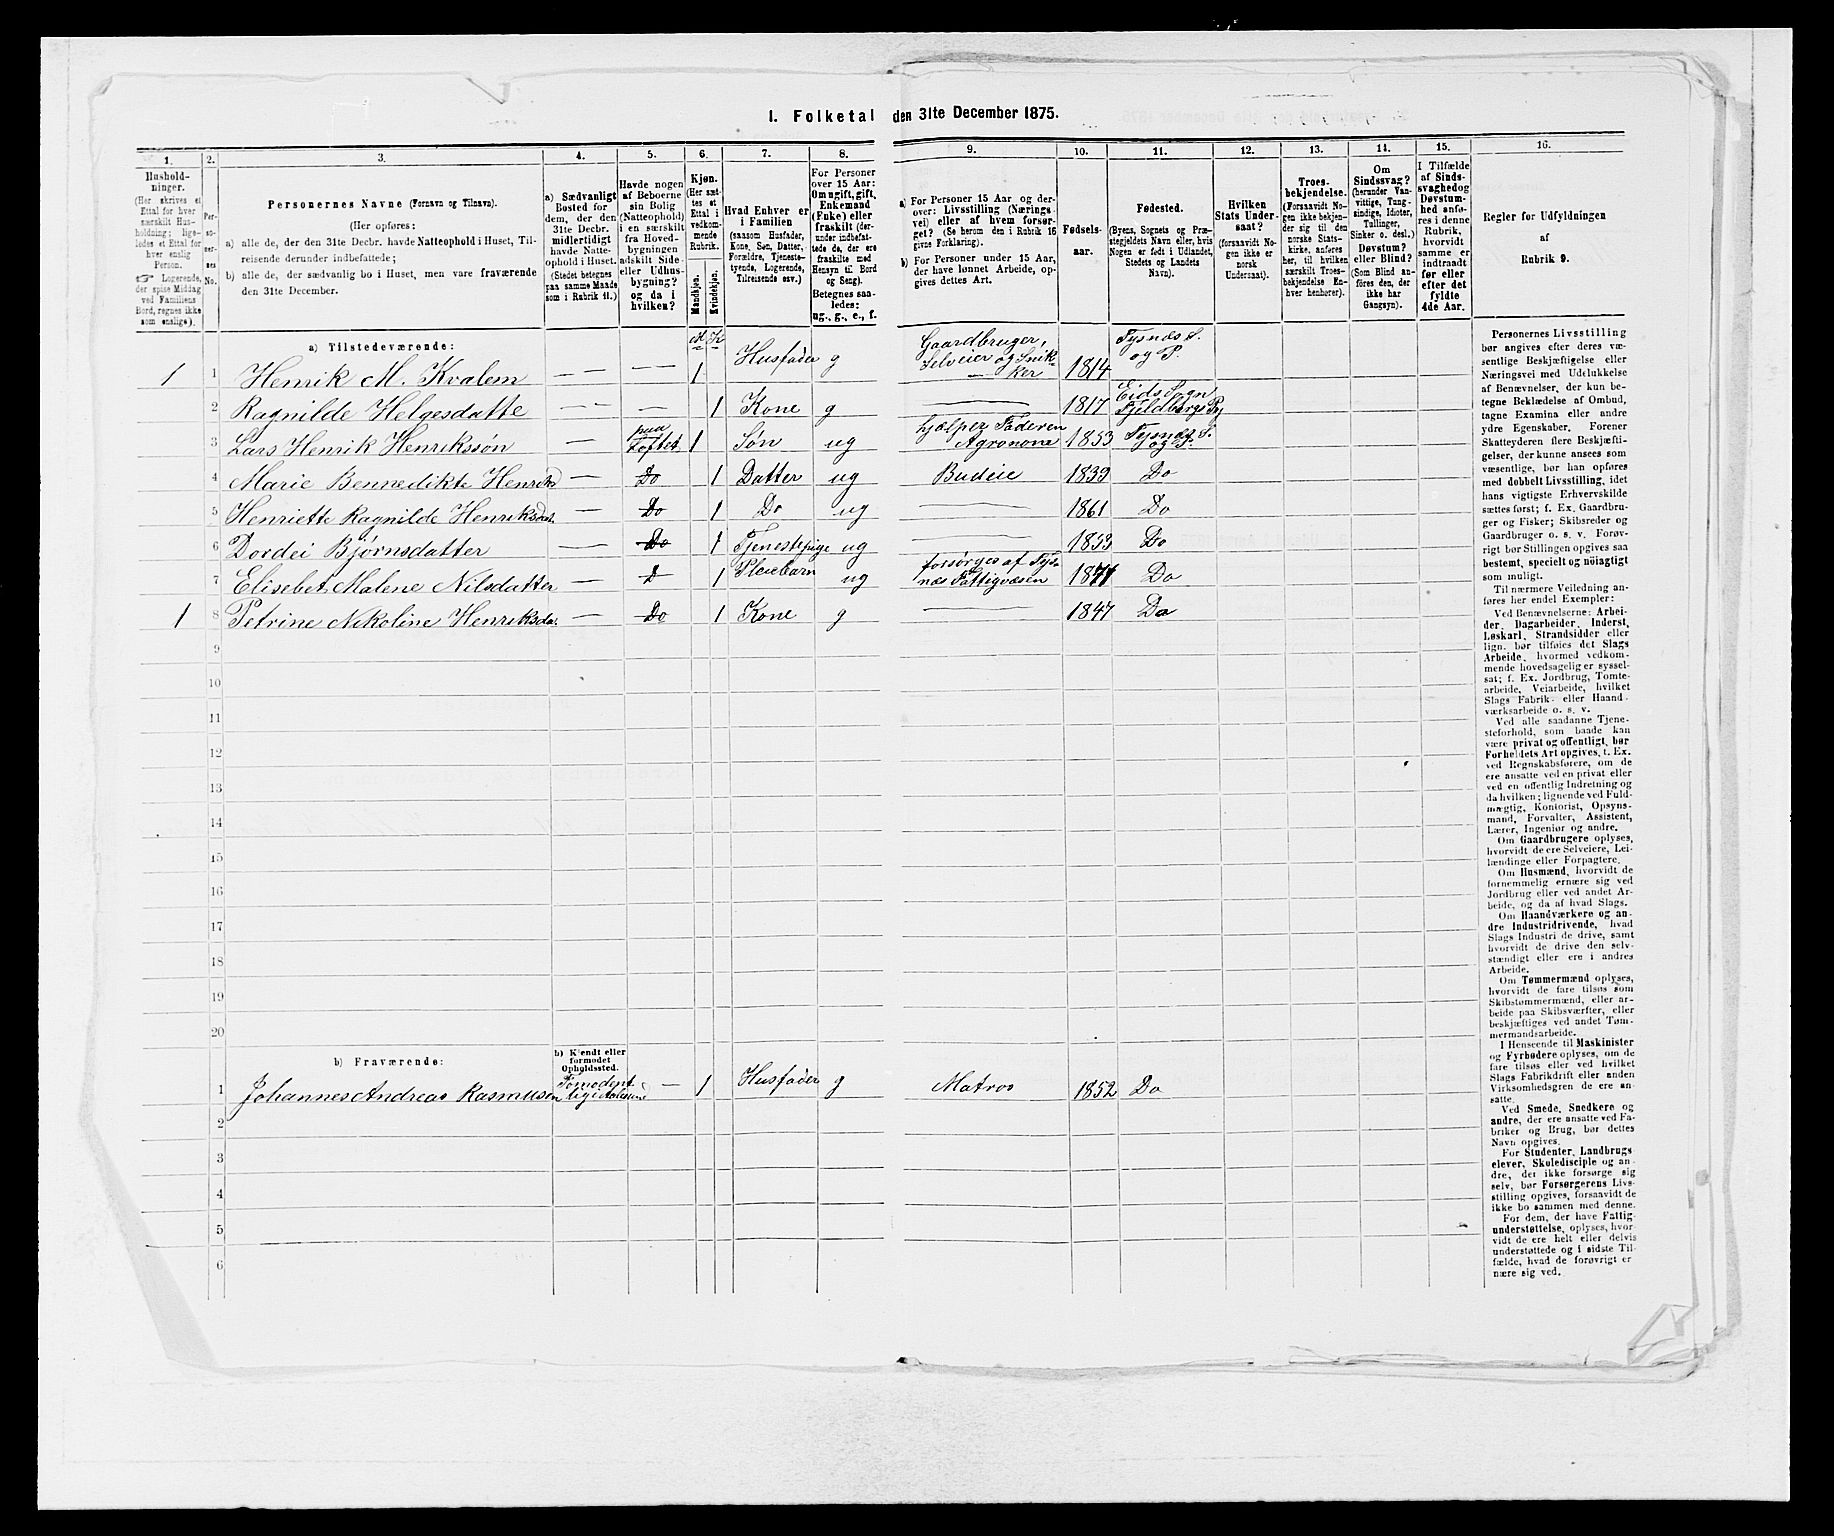 I. Folketal den 31te December 1875.
1. 2. 3. 4. 5. 6. 7. 8. 9. 10. 11. 12. 13. 14. 15. 16.
Hushold-
ninger.
(Her skrives et
Ettal for hver
særskilt Hus-
holdning; lige-
ledes et Ettal for
hver enslig
Person.
☞ Logerende,
der spise Middag
ved Familiens
Bord, regnes ikke
som enslige).
Per-
so-
ner-
nes
No.
Personernes Navne (Fornavn og Tilnavn).
(Her opføres:
a) alle de, der den 31te Decbr. havde Natteophold i Huset, Til-
reisende derunder indbefattede;
b) alle de, der sædvanlig bo i Huset, men vare fraværende
den 31te December.
a) Sædvanligt
Bosted for
dem, der den
31te Decbr.
midlertidigt
havde Natte-
ophold i Huset.
(Stedet betegnes
paa samme Maade
som i Rubrik 11.)
Havde nogen
af Beboerne
sin Bolig
(Natteophold)
i en særskilt
fra Hoved-
bygningen
adskilt Side-
eller Udhus-
bygning?
og da i
hvilken?
Kjøn.
(Her sæt-
tes et
Ettal i
vedkom-
mende
Rubrik.
Mandkjøn.
Kvindekjøn.
Hvad Enhver er
i Familien
(saasom Husfader,
Kone, Søn, Datter,
Forældre, Tjeneste-
tyende, Logerende,
Tilreisende osv.)
For Personer
over 15 Aar:
Om ugift, gift,
Enkemand
(Enke) eller
fraskilt (der-
under indbefat-
tede de, der ere
fraskilte med
Hensyn til Bord
og Seng).
Betegnes saa-
ledes:
ug., g., e., f.
a) For Personer 15 Aar og der-
over: Livsstilling (Nærings-
vei) eller af hvem forsør-
get? (Se herom den i Rubrik 16
givne Forklaring).
b) For Personer under 15 Aar,
der have lønnet Arbeide, op-
gives dettes Art.
Fødsels-
aar.
Fødested.
(Byens, Sognets og Præ-
stegjeldets Navn eller, hvis
Nogen er født i Udlandet,
Stedets og Landets
Navn).
Hvilken
Stats Under-
saat?
(forsaavidt No-
gen ikke er
norsk
Undersaat).
Troes-
bekjendelse.
(Forsaavidt No-
gen ikke bekjen-
der sig til den
norske Stats-
kirke, anføres
her, til hvilken
særskilt Troes-
bekjendelse En-
hver henhører).
Om
Sindssvag?
(herunder Van-
vittige, Tung-
sindige, Idioter,
Tullinger,
Sinker o. desl.)
Døvstum?
eller Blind?
(Som Blind an-
føres den, der
ikke har
Gangsyn).
I Tilfælde
af Sinds-
svaghed og
Døvstum-
hed anfø-
res i denne
Rubrik,
hvorvidt
samme er
indtraadt
før eller
efter det
fyldte
4de Aar.
Regler for Udfyldningen
af
Rubrik 9.
a) Tilstedeværende: M K
1 1 Henrik M. Kvalem — — — — 1 Husfader g Gaardbruger, Selveier og Snikker 1814 Tysnæs S. og P.
2 Ragnilde Helgesdatte — — — 1 Kone g — 1817 Eids Sogn Fjeldbergs P
3 Lars Henrik Henrikssøn — paa Loftet 1 Søn ug hjælper Faderen Agronone 1853 Tysnæs S. og P.
4 Marie Bennedikte Henriksd — Do 1 Datter ug Budeie 1839 Do
5 Henriette Ragnilde Henriksdat. — Do 1 Do ug — 1861 Do
6 Dordei Bjørnsdatter — Do 1 Tjenestepige ug — 1853 Do
7 Elisebet Malene Nilsdatter — D 1 Pleiebarn ug forsørges af Tysnæs Fattigvæsen 1871 Do
1 8 Petrine Nikoline Henriksda. — Do 1 Kone g — 1847 Do
9
10
11
12
13
14
15
16
17
18
19
20
b) Fraværende:
b) Kjendt eller
formodet
Opholdssted.
1 Johannes Andreas Rasmusen — 1 Husfader g Matros 1852 Do
2
3
4
5
6
Personernes Livsstilling
bør angives efter deres væ-
sentlige Beskjæftigelse eller
Næringsvei med Udelukkelse
af Benævnelser, der kun be-
tegne Beklædelse af Ombud,
tagne Examina eller andre
ydre Egenskaber. Forener
Skatteyderen flere Beskjæfti-
gelser, der kunne ansees som
væsentlige, bør han opføres
med dobbelt Livsstilling, idet
hans vigtigste Erhvervskilde
sættes først; f. Ex. Gaardbru-
ger og Fisker; Skibsreder og
Gaardbruger o. s. v. Forøv-
rigt bør Stillingen opgives saa
bestemt, specielt og nøiagtigt
som muligt.
Til nærmere Veiledning an-
føres her endel Exempler:
Ved Benævnelserne: Arbei-
der, Dagarbeider, Inderst,
Løskarl, Strandsidder eller
lign. bør tilføies det Slags
Arbeide, hvormed vedkom-
mende hovedsagelig er syssel-
sat; f. Ex. Jordbrug, Tomte-
arbeide, Veiarbeide, hvilket
Slags Fabrik- eller Haand-
værksarbeide o. s. v.
Ved alle saadanne Tjene-
steforhold, som baade kan
være privat og offentligt, bør
Forholdets Art opgives, t. Ex.
ved Regnskabsførere, om de
ere ansatte ved en privat eller
ved en offentlig Indretning og
da hvilken; lignende ved Fuld-
mægtig, Kontorist, Opsyns-
mand, Forvalter, Assistent,
Lærer, Ingeniør og andre.
Om Gaardbrugere oplyses,
hvorvidt de ere Selveiere, Lei-
lændinge eller Forpagtere.
Om Husmænd, hvorvidt de
fornemmelig ernære sig ved
Jordbrug eller ved andet Ar-
beide, og da af hvad Slags.
Om Haandværkere og an-
dre Industridrivende, hvad
Slags Industri de drive, samt
hvorvidt de drive den selv-
stændigt eller ere i andres
Arbeide.
Om Tømmermænd oplyses,
hvorvidt de fare tilsøs som
Skibstømmermænd, eller ar-
beide paa Skibsværfter, eller
beskjæftiges ved andet Tøm-
mermandsarbeide.
I Henseende til Maskinister
og Fyrbødere oplyses, om de
fare tilsøs eller ved hvilket
Slags Fabrikdrift eller anden
Virksomhedsgren de ere an-
satte.
Ved Smede, Snedkere og
andre, der ere ansatte ved Fa-
briker og Brug, bør dettes
Navn opgives.
For Studenter, Landbrugs-
elever, Skoledisciple og an-
dre, der ikke forsørge sig
selv, bør Forsørgerens Livs-
stilling opgives, forsaavidt de
ikke bo sammen med denne.
For dem, der have Fattig-
understøttelse, oplyses, hvor-
vidt de ere helt eller delvis
understøttede og i sidste Til-
fælde, hvad de forøvrigt er-
nære sig ved.